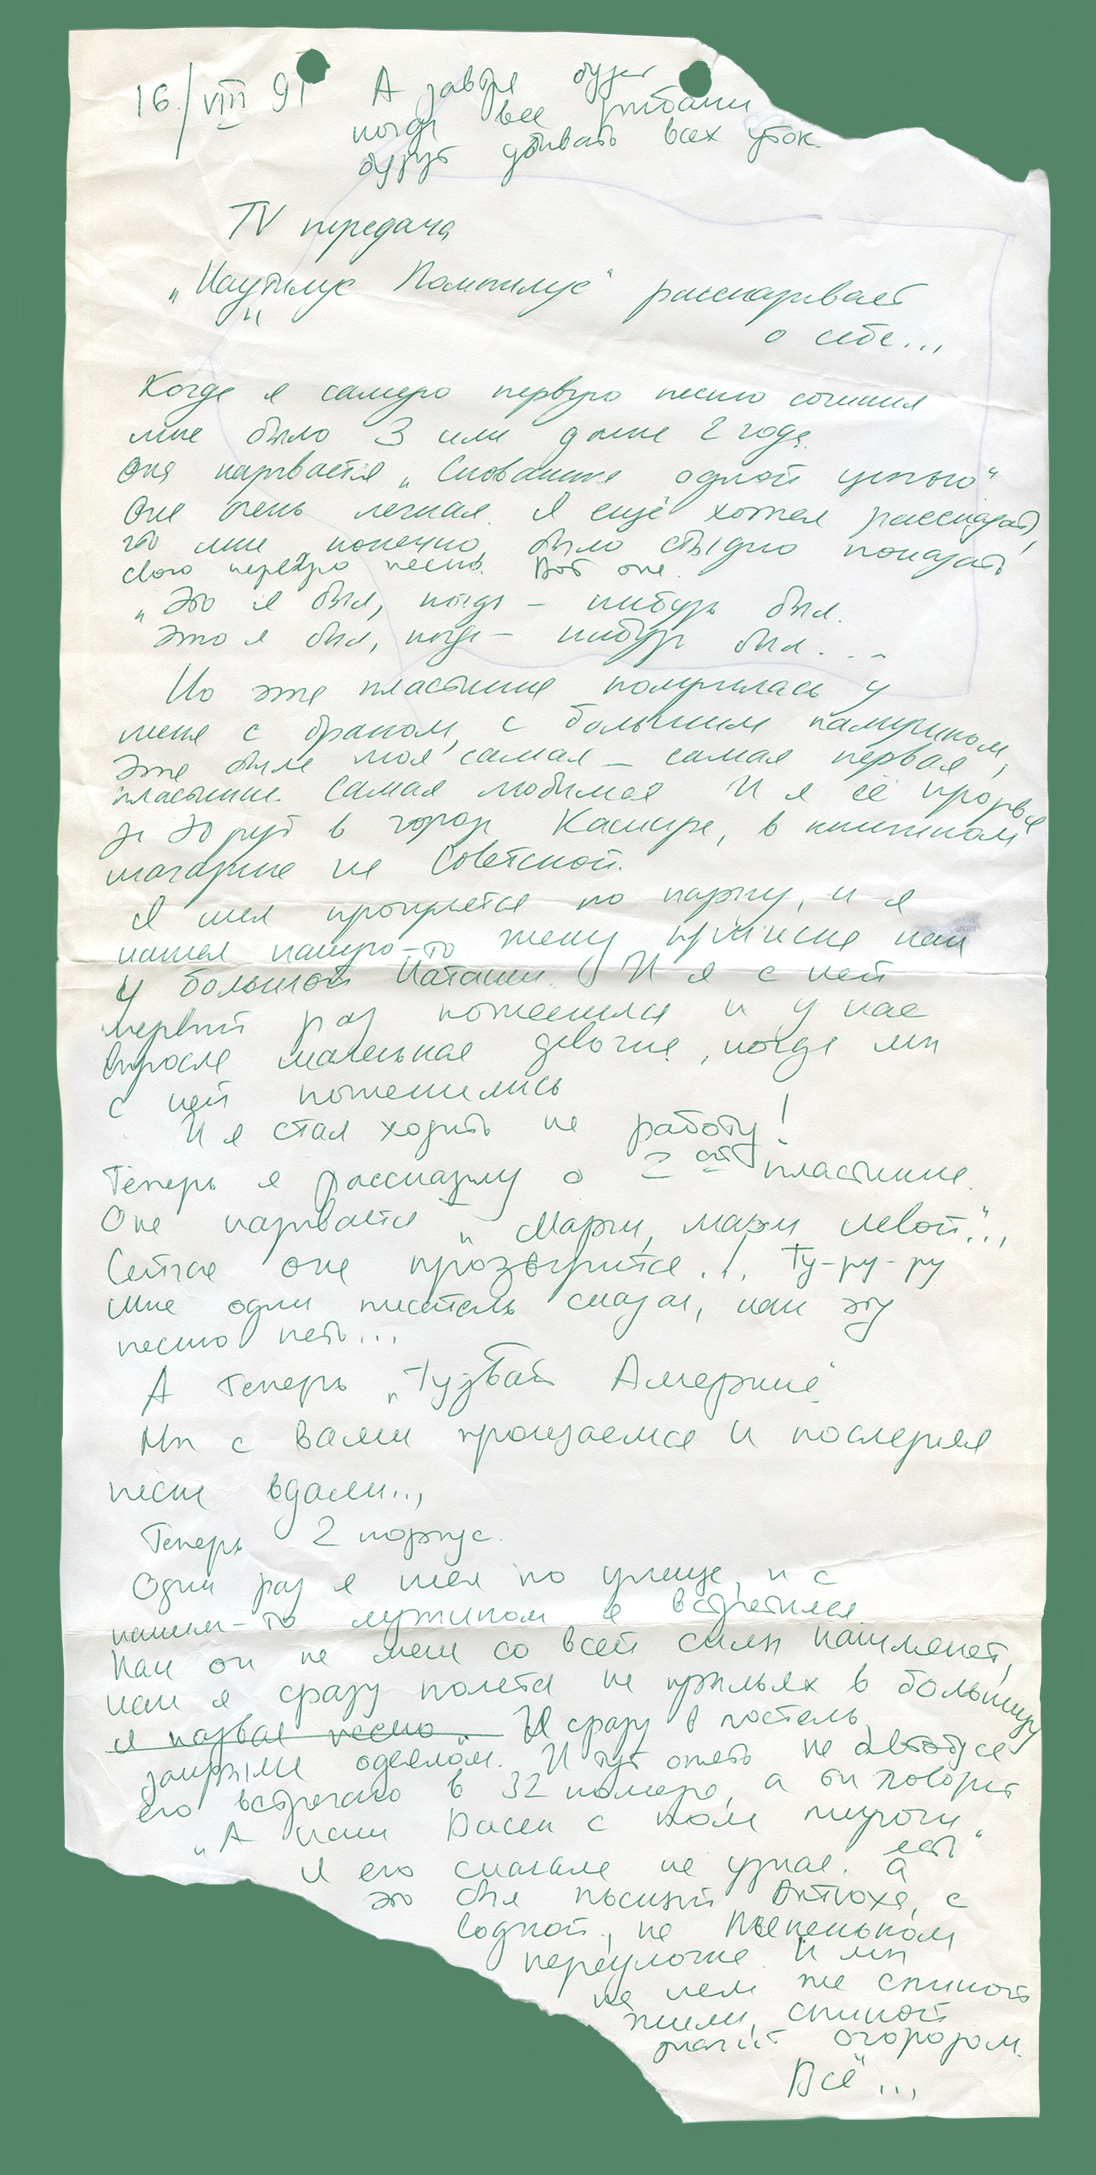 16/VIII 91
А завтра будет
когда все рыбаки
будут убивать всех уток.
TV передача
„Наутилус Помпилус“ рассказывает
о себе...
Когда я самую первую песню сочинил
мне было 3 или даже 2 года.
Она называется „Скованные одной цепью“
Она очень легкая. Я ещё хотел рассказать,
что мне, конечно, было стыдно показать
свою первую песню. Вот она.
„Это я был, когда-нибудь был.
Это я был, когда-нибудь был...
Но эта пластинка получилась у
меня с браком, с большим
Это была моя самая-самая первая,
пластинка. Самая любимая И я её продавал
за 20 руб в город Кашира, в книжном
магазине на Советской.
Я шел прогулятся по парку, и я
нашел какую-то жену, причиска как
у большой Наташи. И я с ней
первый раз поженился и у нас
выросла маленькая девочка, когда мы
с ней поженились
И я стал ходить на работу!
Теперь я расскажу о 2ой пластинке.
Она называется „Марш, марш левой“...
Сейчас она прозвучится... Ту-ру-ру
Мне один писатель сказал, как эту
песню петь...
А теперь „Гудбай Америка“
Мы с Вами прощаемся и последняя
песня вдали...
Теперь 2 корпус.
Один раз я шел по улице, и с
каким-то мужиком я встретился.
Как он на меня со всей силы
как я сразу полетел на крыльях в больницу
я назвал песню И сразу в постель
закрыли одеялом. И тут опять на автобусе
его встречаю в 32 номере, а он говорит
„А как Васей с дом пироги
есть“
Я его сначала не узнал. а
это был лысый Антюха, с
Содкой, на Пененьком
переулочке. И мы
на нем же спиной
жили, спиной
значит огородом.
Всё“...